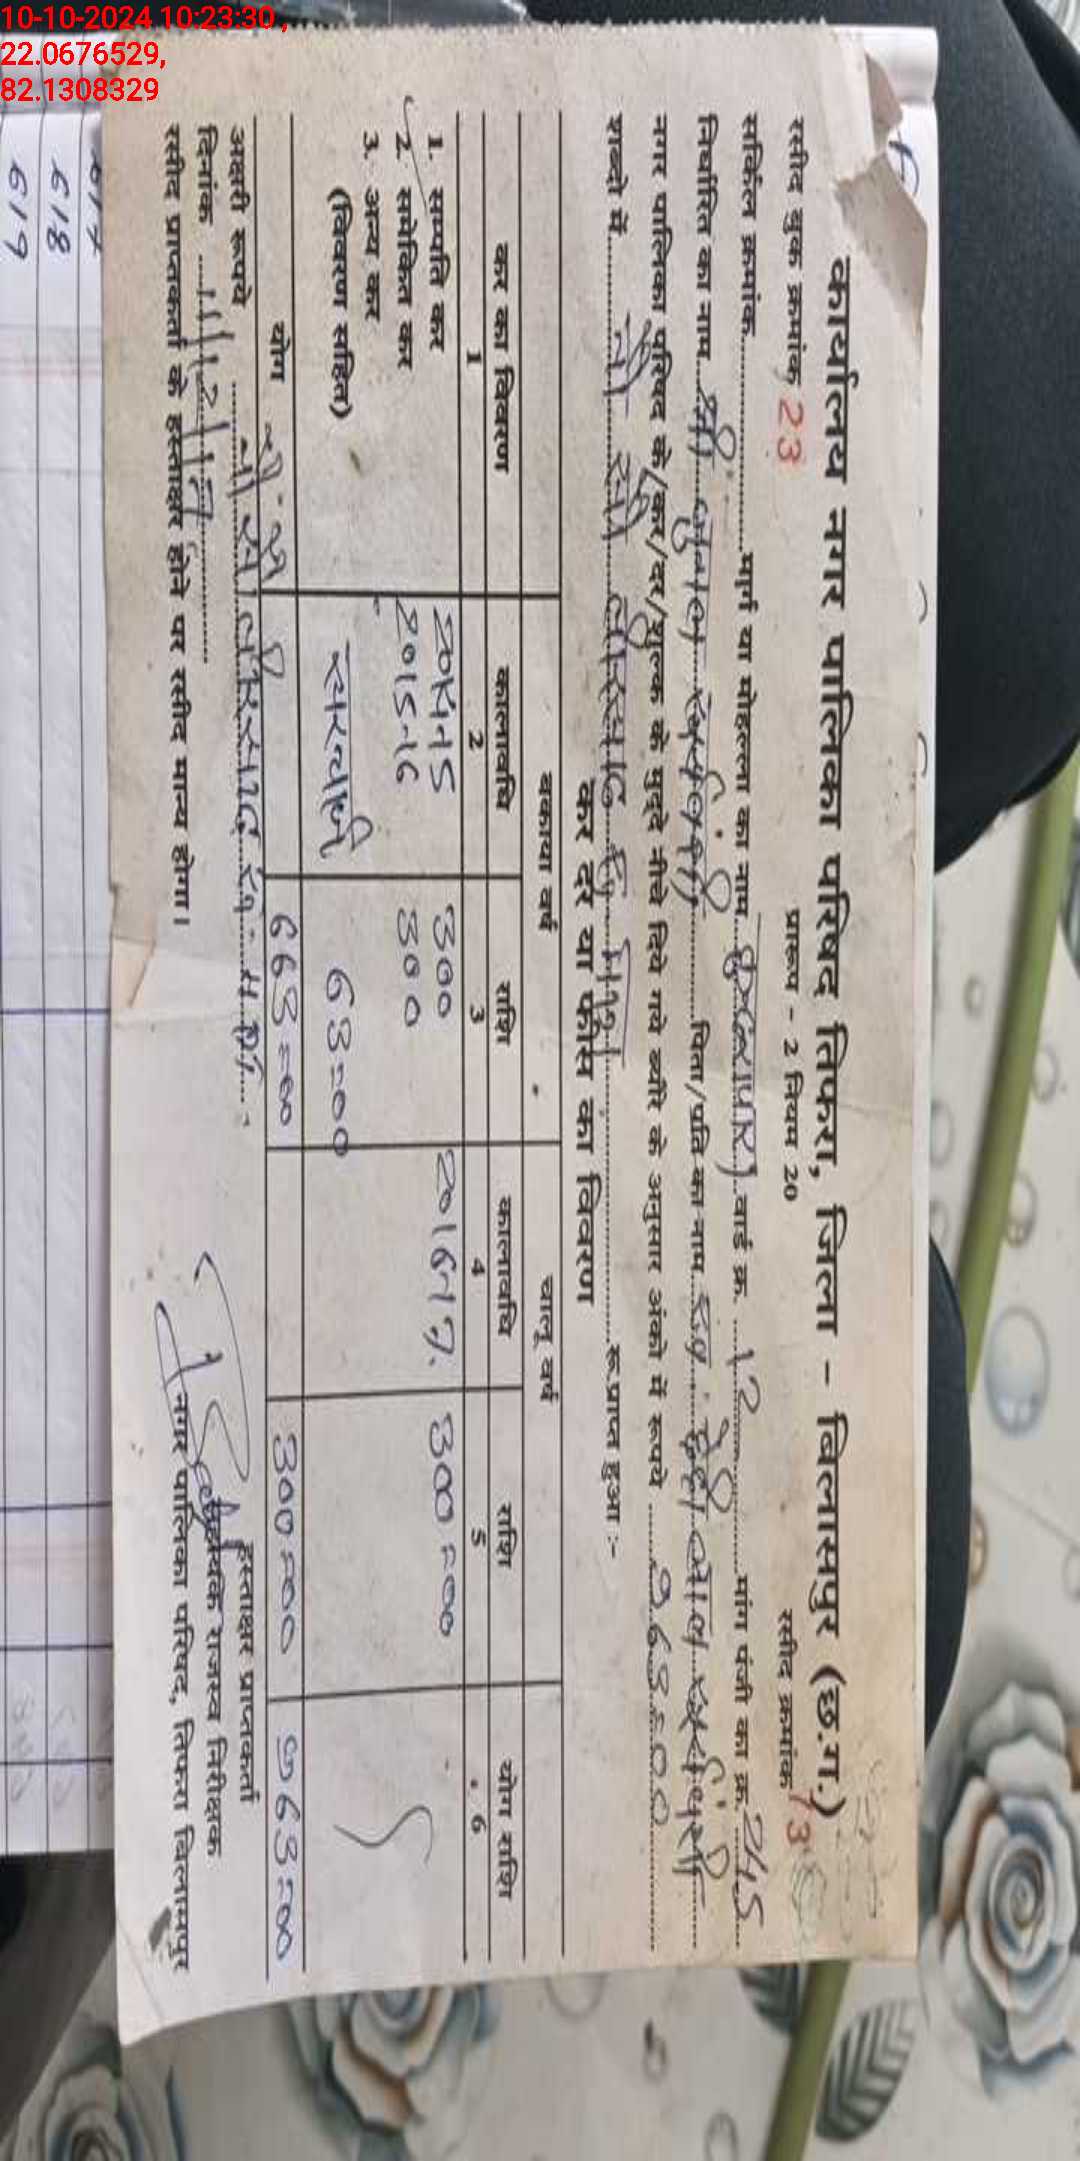 10-10-2024 10:23:30,
22.0676529,
82.1308329
कार्यालय नगर पालिका परिषद तिफरा, जिला - बिलासपुर (छ.ग.)
रसीद बुक क्रमांक 23 प्रारूप - 2 नियम 20 रसीद क्रमांक 73
सर्किल क्रमांक मार्ग या मोहल्ला का नाम वार्ड क्र. 12 मांग पंजी का क्र. 245
निर्धारित का नाम श्री पिता/पति का नाम स्व.
नगर पालिका परिषद के/कर/दर/शुल्क के मुद्दे नीचे दिये गये ब्यौरे के अनुसार अंको में रूपये 963=00
शब्दो में नौ सौ रू.प्राप्त हुआ :-
कर दरे या फीस का विवरण
बकाया वर्ष चालू वर्ष
कर का विवरण कालावधि राशि कालावधि राशि योग राशि
1 2 3 4 5 6
1. सम्पति कर 2014-15 300 2016-17. 300=00
2. समेकित कर 2015-16 300
3. अन्य कर
(विवरण सहित) सरचार्ज 63=00
योग 663=00 300=00 963=00
अक्षरी रूपये नौ सौ
दिनांक हस्ताक्षर प्राप्तकर्ता
रसीद प्राप्तकर्ता के हस्ताक्षर होने पर रसीद मान्य होगा। सहायक राजस्व निरीक्षक
नगर पालिका परिषद, तिफरा बिलासपुर
618
619